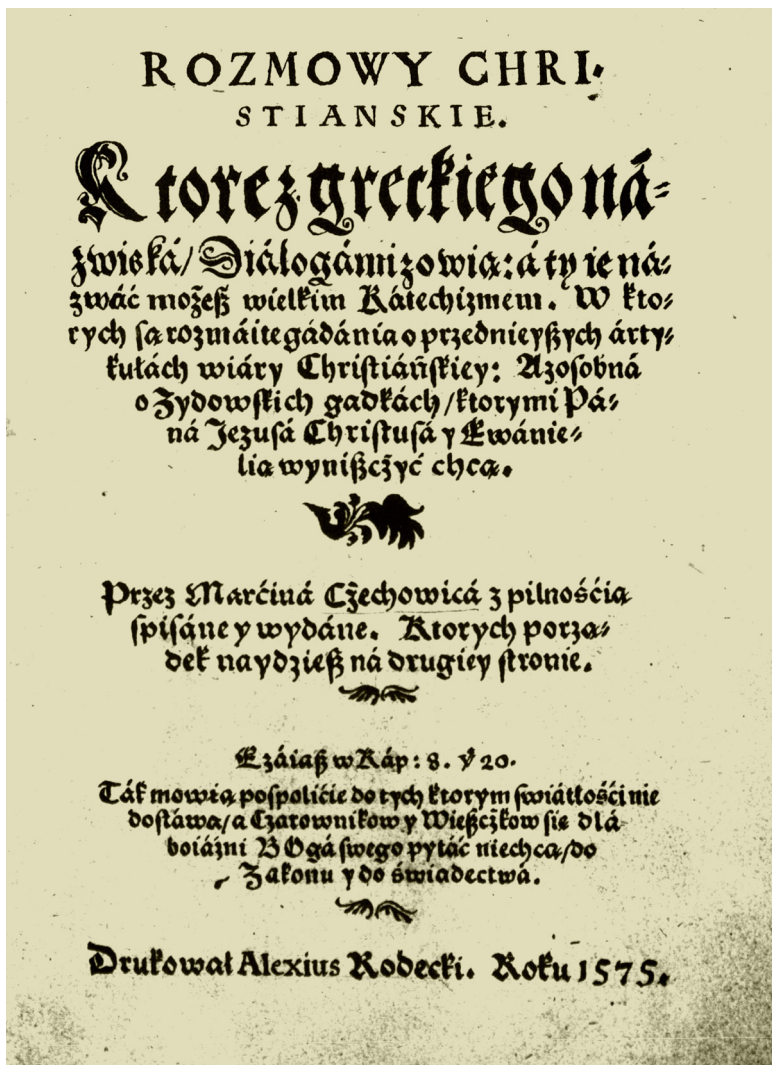 ROZMOWY CHRI-
STIANSKIE.
Ktore z greckiego ná-
zwiská/ Diálogámi zowią: á ty ie ná-
zwáć możeß wielkim Kátechizmem. W kto-
rych są rozmáite gádánia o przednieyßych árty-
kułách wiáry Christiáńskiey: A zosobná
o Zydowskich gadkách/ ktorymi Pá-
ná Jezusá Christusá y Ewánie-
lia wynißczyć chcą.
Przez Marćiná Czechowicá z pilnośćią
spisáne y wydáne. Ktorych porzą-
dek naydzieß ná drugiey stronie.
Ezáiaß w Káp: 8. ẏ 20.
Ták mowią pospolićie do tych ktorym swiátłośći nie
dostáwa/ a Czarownikow y Wießczkow sie dlá
boiáźni BOgá swego pytáć niechcą/ do
Zakonu y do świadectwá.
Drukował Alexius Rodecki. Roku 1575.